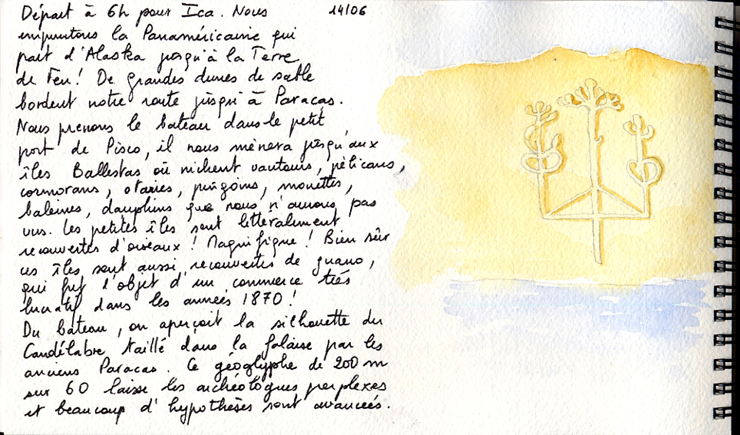 Départ à 6h pour Ica. Nous 14/06
empruntons la Panaméricaine qui
part d'Alaska jusqu'à la Terre
de Feu ! De grandes dunes de sable
bordent notre route jusqu'à Paracas.
Nous prenons le bateau dans le petit
port de Pisco, il nous mènera jusqu'aux
îles Ballestas où nichent vautours, pélicans,
cormorans, otaries, pingoins, mouettes,
baleines, dauphins que nous n'aurons pas
vus. Les petites îles sont littéralement
recouvertes d'oiseaux ! Magnifique ! Bien sûr
ces îles sont aussi recouvertes de guano,
qui fut l'objet d'un commerce très
lucratif dans les années 1870 !
Du bateau, on aperçoit la silhouette du
Candélabre taillé dans la falaise par les
anciens Paracas. Ce géoglyphe de 200 m
sur 60 laisse les archéologues perplexes
et beaucoup d'hypothèses sont avancées.